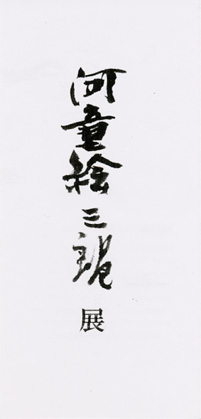 河童絵三展